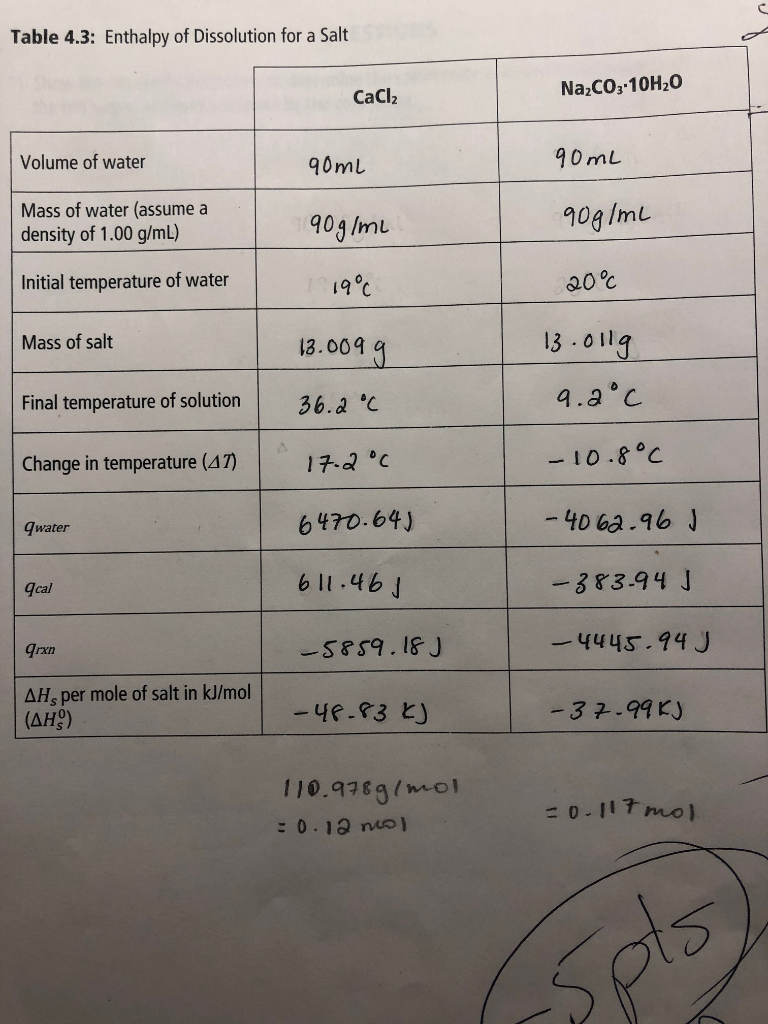 Table 4.3: Enthalpy of Dissolution for a Salt
CaCl₂ Na₂CO₃·10H₂O
Volume of water 90mL 90mL
Mass of water (assume a
density of 1.00 g/mL) 90g/mL 90g/mL
Initial temperature of water 19°C 20°C
Mass of salt 13.009 g 13.011g
Final temperature of solution 36.2 °C 9.2°C
Change in temperature (ΔT) 17.2 °C -10.8°C
qwater 6470.64J -4062.96 J
qcal 611.46 J -383.94 J
qrxn -5859.18J -4445.94J
ΔHₛ per mole of salt in kJ/mol
(ΔHₛ⁰) -48.83 KJ -37.99KJ
110.978g/mol
= 0.12 mol = 0.117mol
-5pts